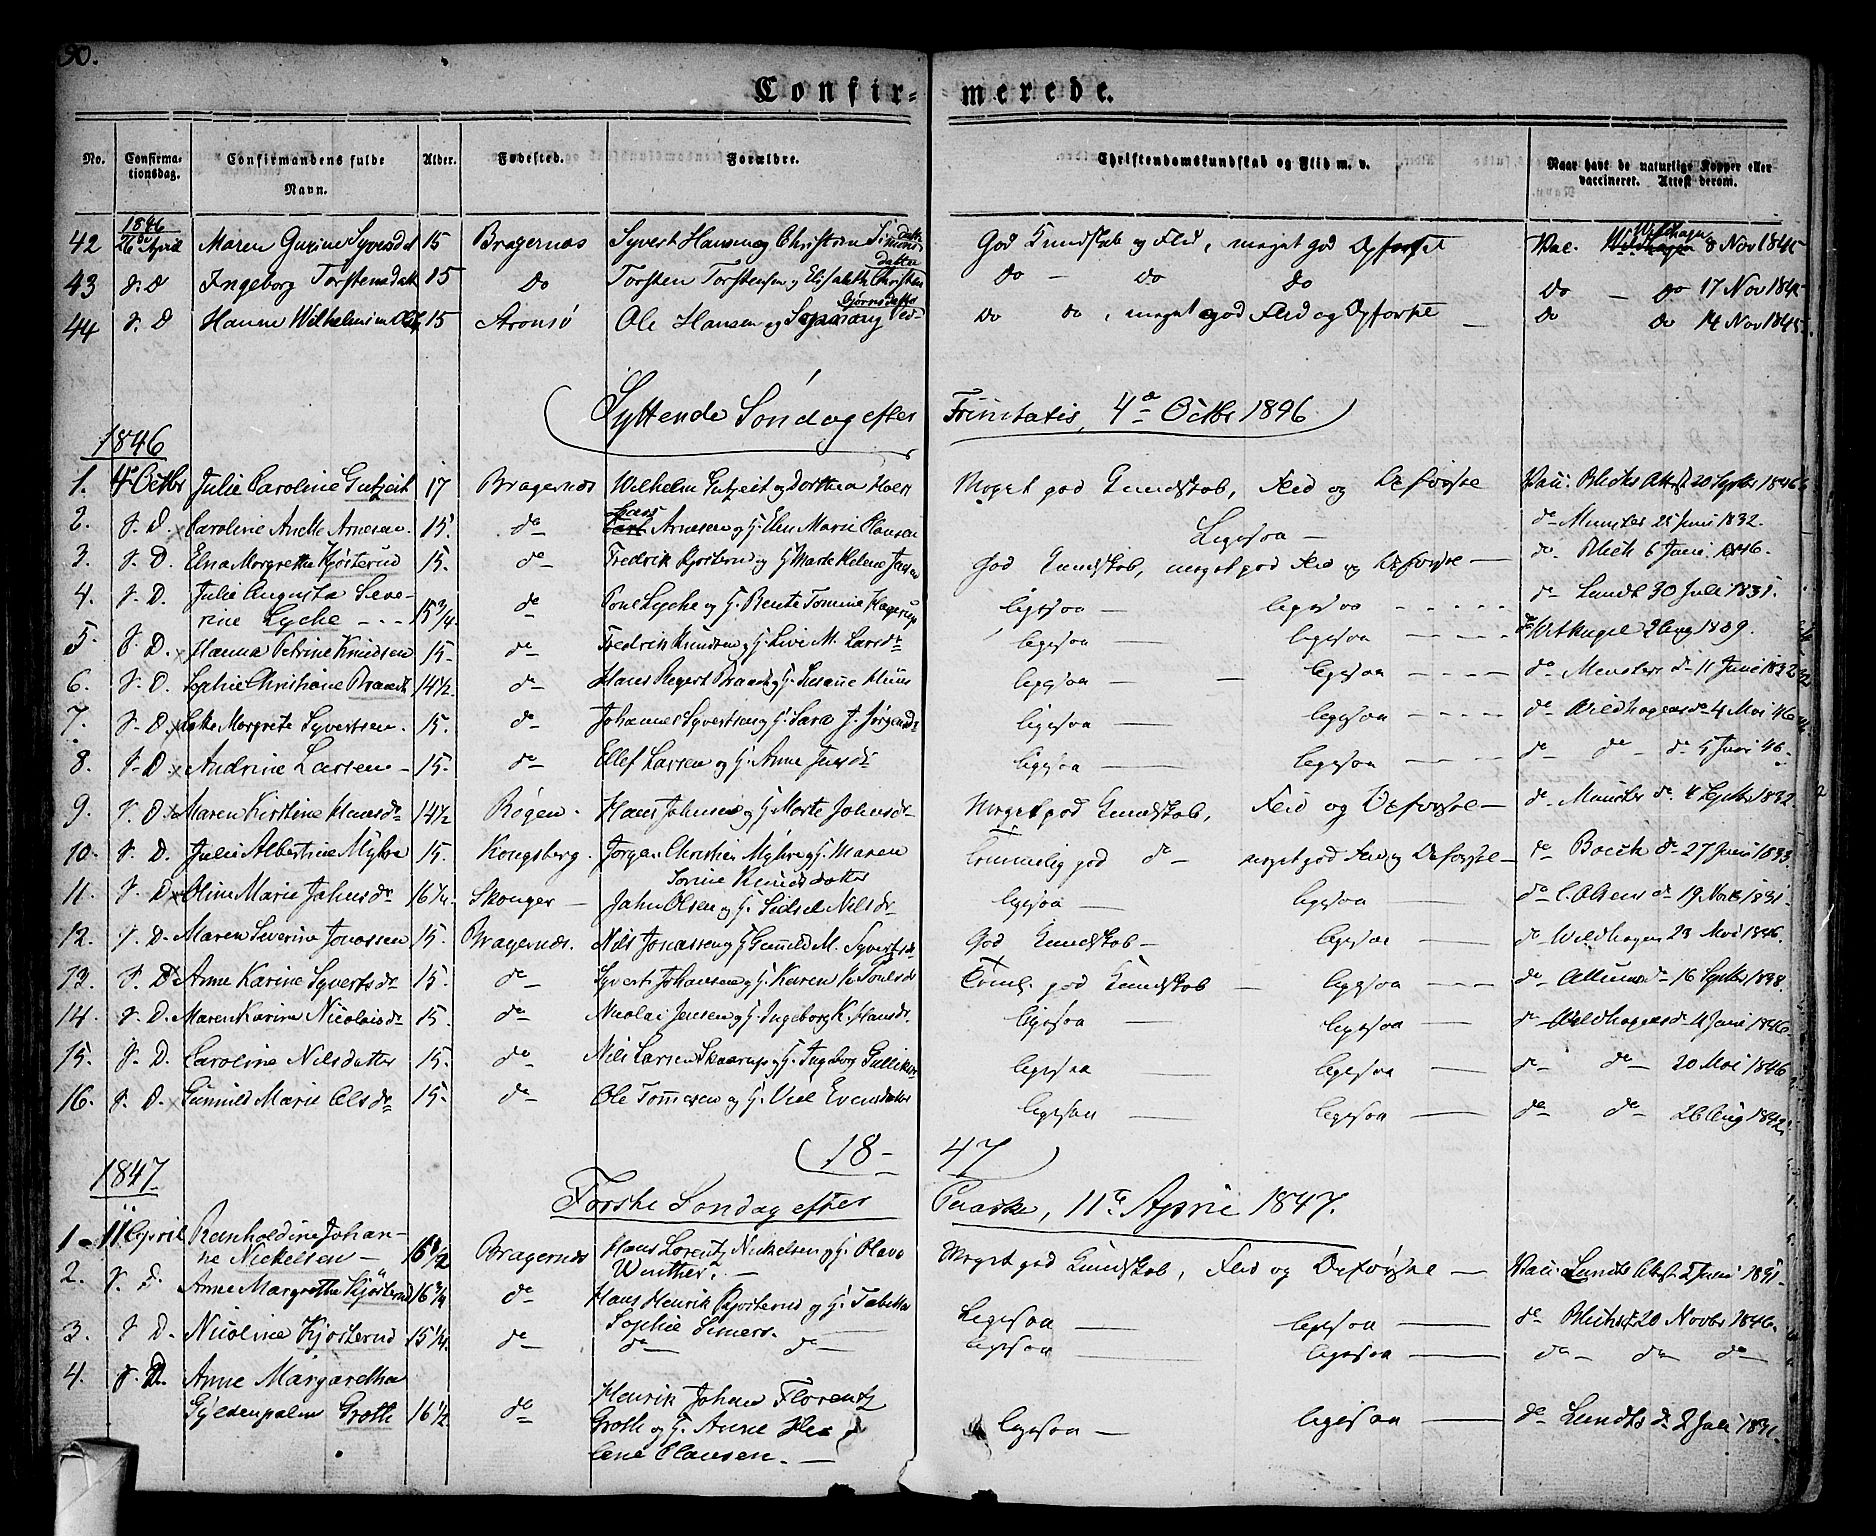 90.
Confir= merede.
No. Confirma-tionsdag. Confirmandens fulde Navn. Alder. Fødested. Forældre. Christendomskundskab og Flid m. v. Naar havt de naturlige Kopper eller vaccineret. Attest derom.
42 1846 26de April Maren Gurine Syversdat 15 Bragernæs Syvert Hansen og Christine Simons datter God Kundskab og Flid, meget god Opførsel Vac. Wildhagen 8 Nov 1845
43 s. D Ingeborg Torstensdatt 15 Do Torsten Torstensen og Elisabeth Christens datter Do — Do Do Do — Do 17 Nov 1845
44 s. D Hanne Wilhelmine 15 Strømsø Ole Hansen og Bjørnsdatter Do Do, meget god Flid og Opførsel — Do Do 14 Nov 1845
Syttende Søndag efter Trinitatis, 4de Octbr 1846
1846
1. 4 Octbr Julie Caroline Gutzeit 17 Bragernæs Wilhelm Gutzeit og Dorthea Holm Meget god Kundskab, Flid og Opførsel Vacc. Blichs Attest 20 Septbr 1846
2. s. D. Caroline Anette Arnesen 15. do Hans Arnesen og H. Elen Marie Clausen Ligesaa — do Munster 25 Juni 1832.
3. s. D. Elna Margrethe Kjøsterud 15. do Fredrik Kjøsterud og H. Marte Helene Jensen God Kundskab, meget god Flid og Opførsel — do Blich 6 Juni 1846.
4. s. D. Julie Augusta Seve-
rine Lyche 15 3/4 do Poul Lyche og H. Bente Tomine Hagerup ligesaa — ligesaa do Lundt 30 Juli 1831.
5. s. D. Hanna Petrine Knudsen 15. do Fredrik Knudsen og H. Live M. Larsdr ligesaa — ligesaa do 2 Aug 1839.
6. s. D. Sophie Christiane Brandt 14 1/2 do Hans Brandt og H. Susanne Huus ligesaa — ligesaa do Munsters do 11 Juni 1832
7. s. D. Margrete Syvertsen 15. do Johannes Syvertsen og H. Sara J. Jørgensdr ligesaa — ligesaa do Wildhagens do 4 Mai 46
8. s. D. Andrine Larsen 15. do Ellef Larsen og H. Anne Jensdr ligesaa — ligesaa do do do 5 Juni 46.
9. s. D. Maren Kirstine Hansdr 14 1/2 Røgen. Hans Johnsen og H. Marte Johnsdr Meget god Kundskab, Flid og Opførsel — do Munster do 4 Septbr 1832.
10. s. D. Julie Albertine Myhre 15. Kongsberg. Jørgen Christian Myhre og H. Maren Temmelig god do meget god Flid og Opførsel — do Boeck do 27 Juni 1833
Sorine Knudsdatter
11. s. D. Oline Marie Johnsdr 16 1/4. Skouger — John Olsen og H. Sidsel Nilsdr ligesaa — ligesaa — do C. Olsens do 19 Novb 1831.
12. s. D. Maren Severine Jonassen 15. Bragernæs. Nils Jonassen og H. Gunnild M. Syvertsdr God Kundskab — ligesaa — do Wildhagen 23 Mai 1846.
13. s. D. Anne Karine Syvertsdr 15. do Syvert Johansen og H. Karen K. Poulsdr Teml. god Kundskab — ligesaa — do do 16 Septbr 1838.
14. s. D. Maren Karine Nicolaisdr 15. do Nicolai Jensen og H. Ingeborg K. Hansdr. ligesaa — ligesaa — do Wildhagens do 4 Juni 1846
15. s. D. Caroline Nilsdatter 15. do Nils Larsen Skaarup og H. Ingeborg Gulliksdr ligesaa — ligesaa — do do 20 Mai 1846
16. s. D. Gunnild Marie Olsdr 15. do Ole Tommesen og H. Evensdatter ligesaa — ligesaa — do do 26 Aug 1842.
18- 47
1847
Første Søndag efter Paaske, 11te April 1847.
1. 11 April Reinholdine Johan-
ne Nickelsen — 16 1/2 Bragernæs Hans Lorentz Nickelsen og H. Olava Winther. — Meget god Kundskab, Flid og Opførsel — Vacc. Lundts Attest 5 Juni 1831.
2. s. D. Anne Margrethe Kjøsterud 16 3/4 do Hans Henrik Kjøsterud og H. Tabitha Sophie Simers. Ligesaa — ligesaa — do Blichs do 20 Novbr 1846.
3. s. D. Nicoline Kjøsterud 15 1/4. do do do ligesaa — ligesaa — do do do
4. s. D. Anne Margaretha
Gyldenpalm Groth 16 1/2 do Henrik Johan Florentz
Groth og H. Anne He-
lene Clausen. — ligesaa — ligesaa — do Lundts do 2 Juli 1831.